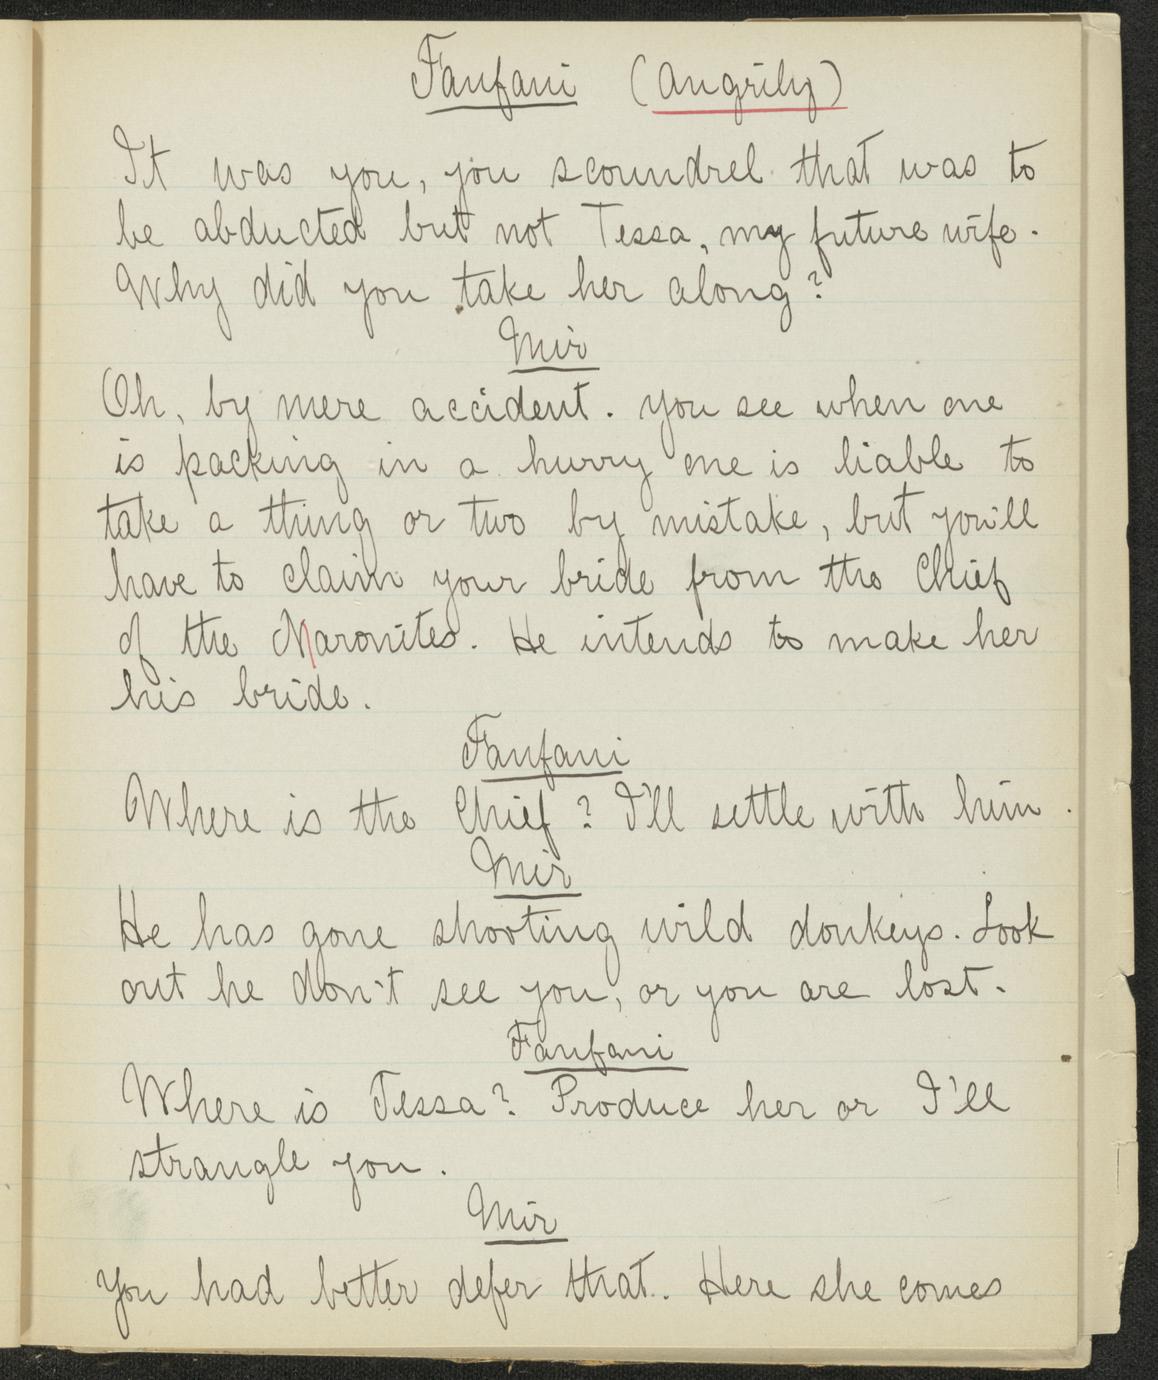 Fanfani (Angrily)
It was you, you scoundrel that was to
be abducted but not Tessa, my future wife.
Why did you take her along?
Mir
Oh, by mere accident. You see when one
is packing in a hurry one is liable to
take a thing or two by mistake, but you'll
have to claim your bride from the Chief
of the Maronites. He intends to make her
his bride.
Fanfani
Where is the Chief? I'll settle with him.
Mir
He has gone shooting wild donkeys. Look
out he don't see you, or you are lost.
Fanfani
Where is Tessa? Produce her or I'll
strangle you.
Mir
You had better defer that. Here she comes